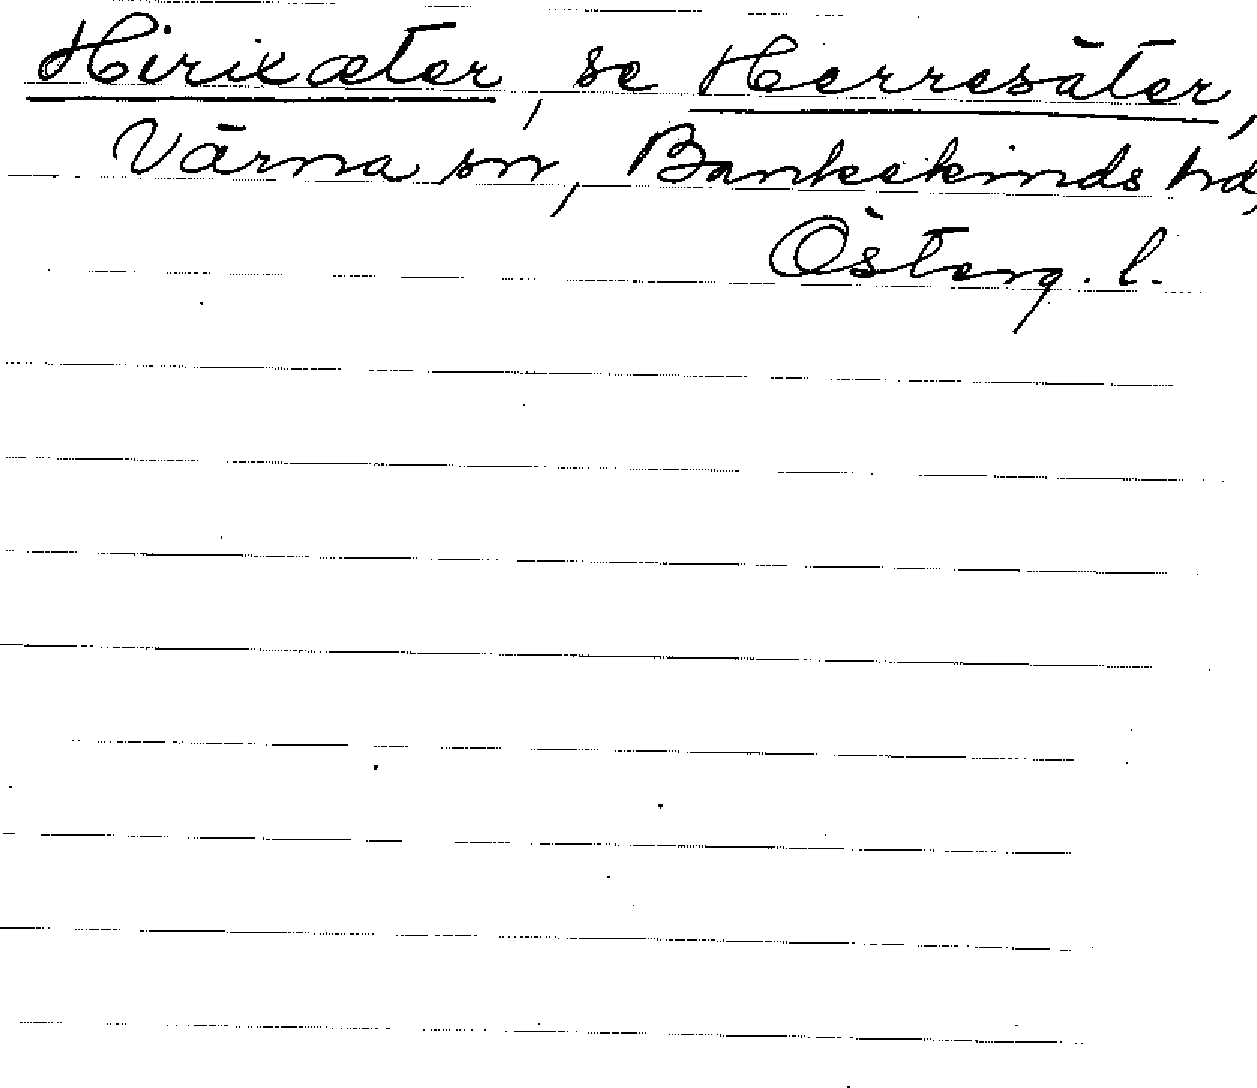 Hirixæter, se Herresäter,
Värna sn, Bankekinds hd,
Österg. l.